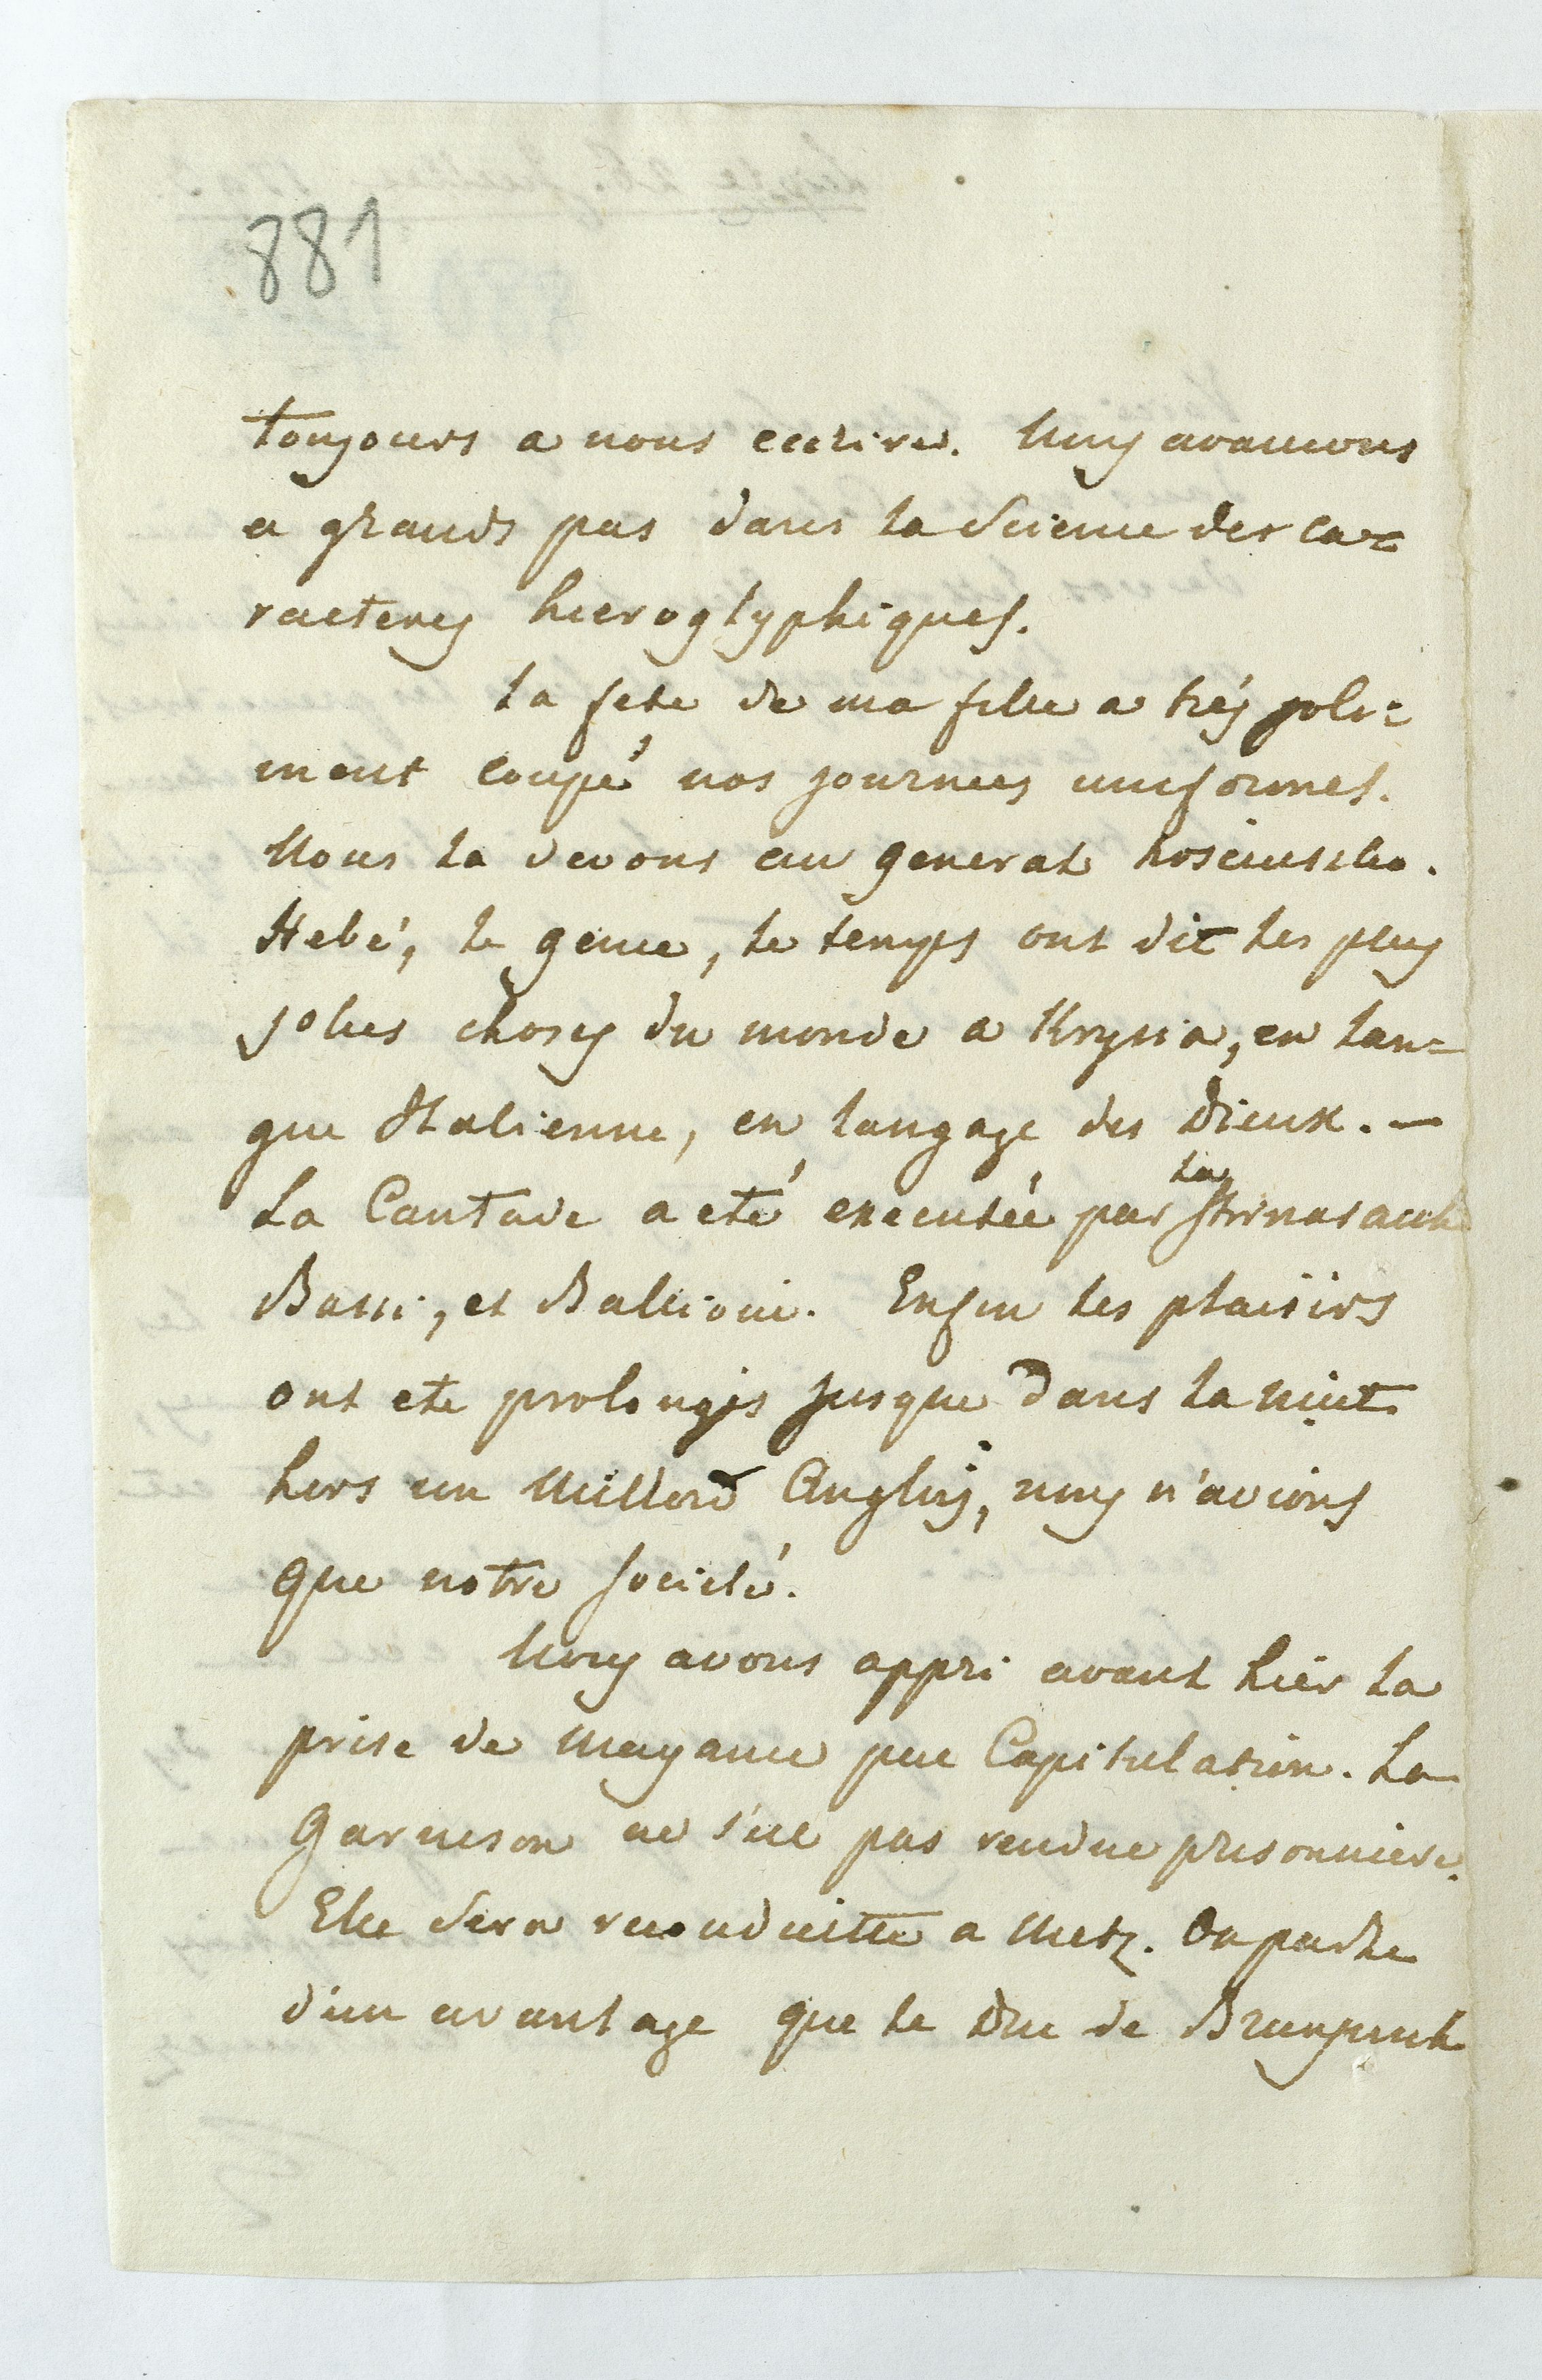 881
toujours a nous ecrire. Nous avancons
a grands pas dans la Science des ca=
racteres hieroglyphiques.
la fete de ma fille a trés joli=
ment coupé nos journees uniformes.
Nous la devons au general Kosciuszko.
Hebé, le genie, le temps ont dit les plus
jolies choses du monde a Krysia, en lan=
gue Italienne, en langage des Dieux. —
la
La Cantade a eté executée par Strinasacchi
Bassi, et Ballioni. Enfin les plaisirs
ont ete prolongés jusque dans la nuit
hors un Millord Anglois, nous n'avions
que notre societé.
Nous avons appri avant hièr la
prise de Mayance par Capitulation. La
Garnison ne s'est pas rendue prisonniere.
Elle sera reconduitte a Metz. On parle
d'un avantage que le Duc de Brunswick